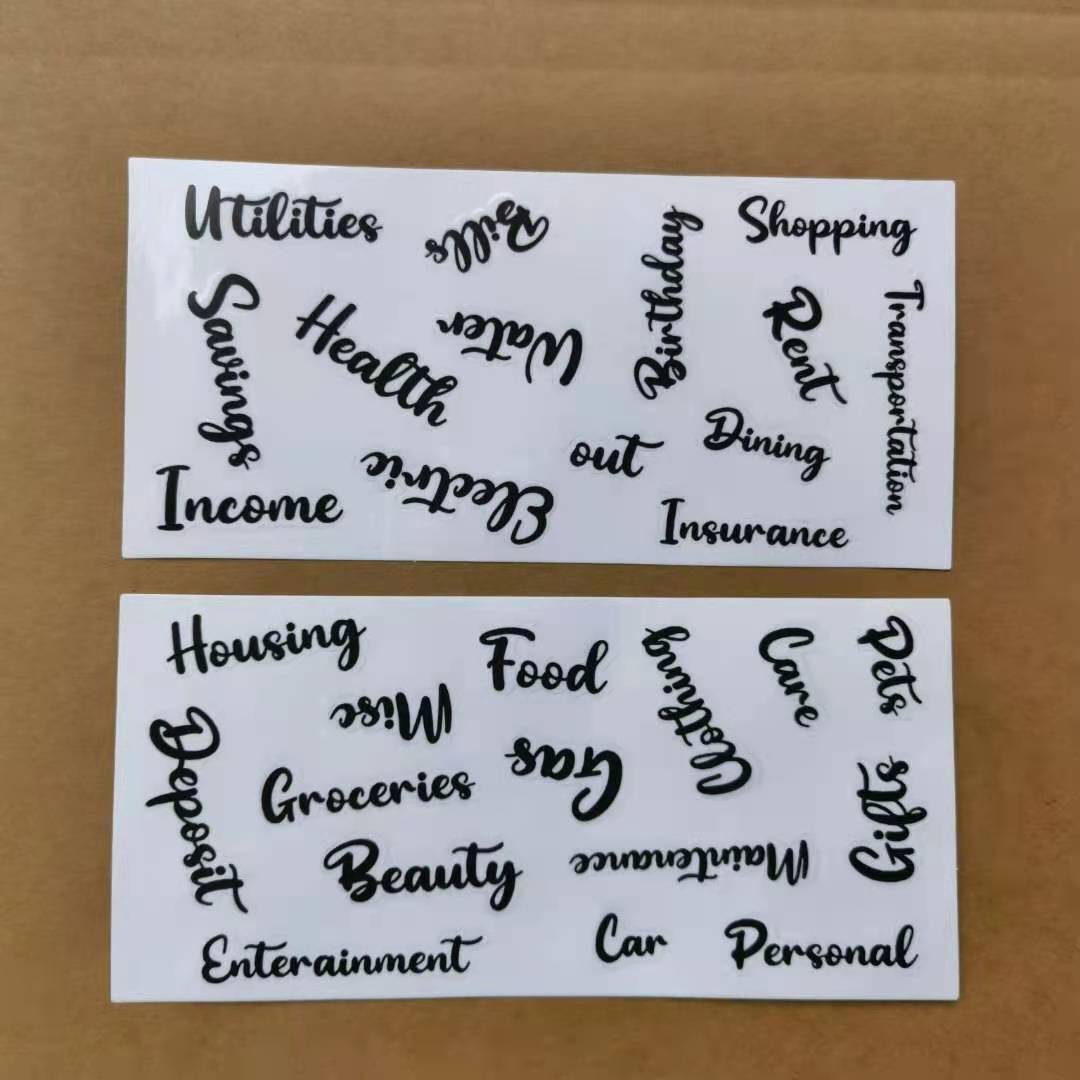 Utilities
Bills
Birthday
Shopping
Savings
Health
Water
Rent
Transportation
Income
Electric
out
Dining
Insurance
Housing
Food
Clothing
Care
Pets
Deposit
Misc
Groceries
Gas
Gifts
Beauty
Maintenance
Enterainment
Car
Personal